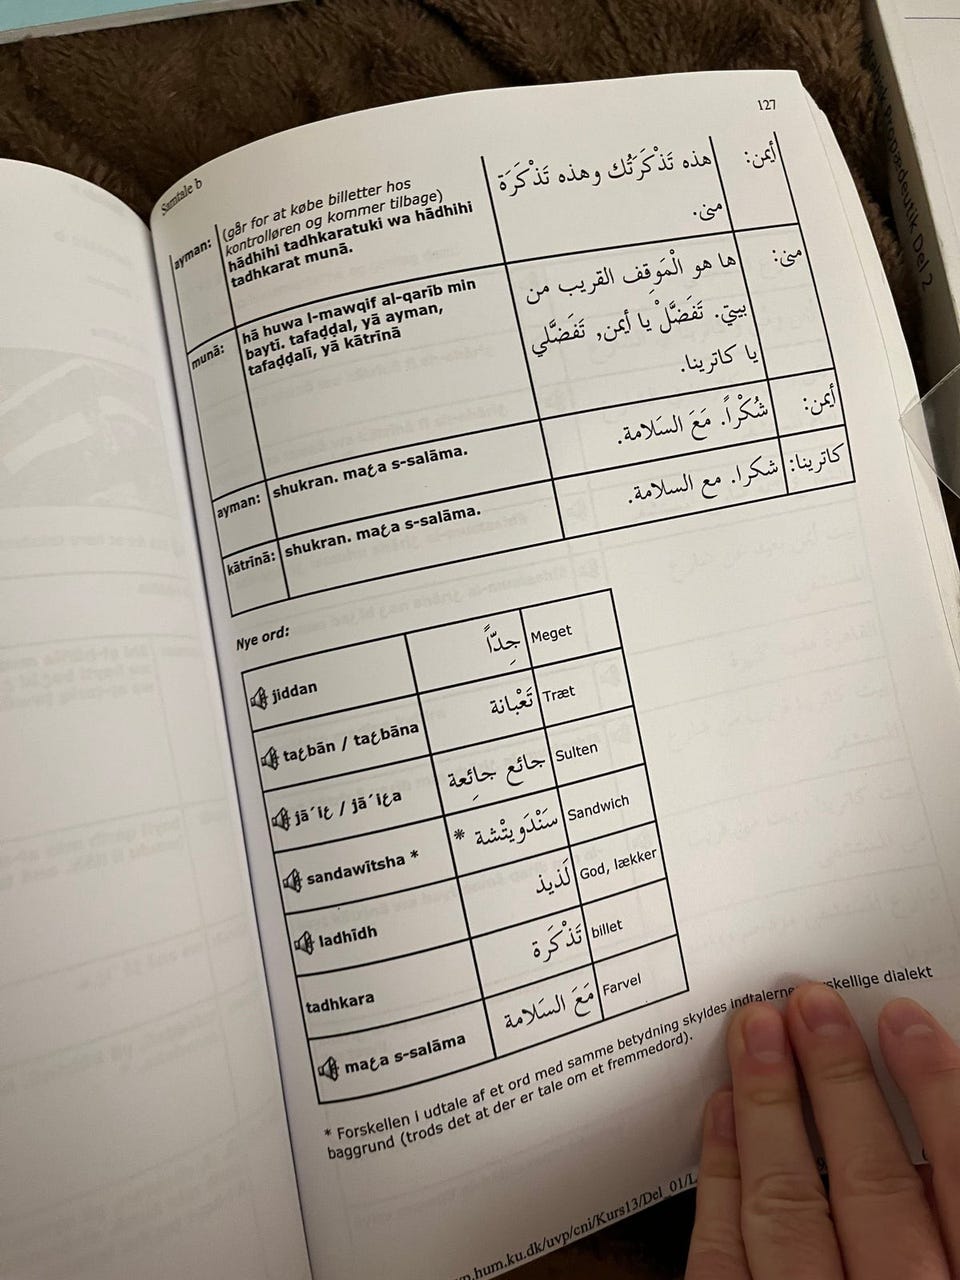 127
Samtale b
ayman:
(går for at købe billetter hos
kontrolløren og kommer tilbage)
hādhihi tadhkaratuki wa hādhihi
tadhkarat munā.
هذه تَذْكَرَتُك وهذه تَذْكَرَة
منى.
أيمن:
munā:
hā huwa l-mawqif al-qarīb min
baytī. tafaḍḍal, yā ayman,
tafaḍḍalī, yā kātrīnā
ها هو الْمَوقِف القريب من
بيتي. تَفَضَّلْ يا أيمن, تَفَضَّلي
يا كاترينا.
منى:
ayman:
shukran. maع​a s-salāma.
شُكْراً. مَعَ السَلامة.
أيمن:
kātrīnā:
shukran. maعa s-salāma.
شكرا. مع السلامة.
كاترينا:
Nye ord:
jiddan
جِدّاً
Meget
taعbān / taعbāna
تَعْبانة
Træt
jā´iع / jā´iعa
جائع جائِعة
Sulten
sandawītsha *
سَنْدَويتْشة *
Sandwich
ladhīdh
لَذيذ
God, lækker
tadhkara
تَذْكَرة
billet
maعa s-salāma
مَعَ السَلامة
Farvel
* Forskellen i udtale af et ord med samme betydning skyldes indtalerne dialekt
baggrund (trods det at der er tale om et fremmedord).
.hum.ku.dk/uvp/cni/Kurs13/Del_01/L
Propædeutik Del 2